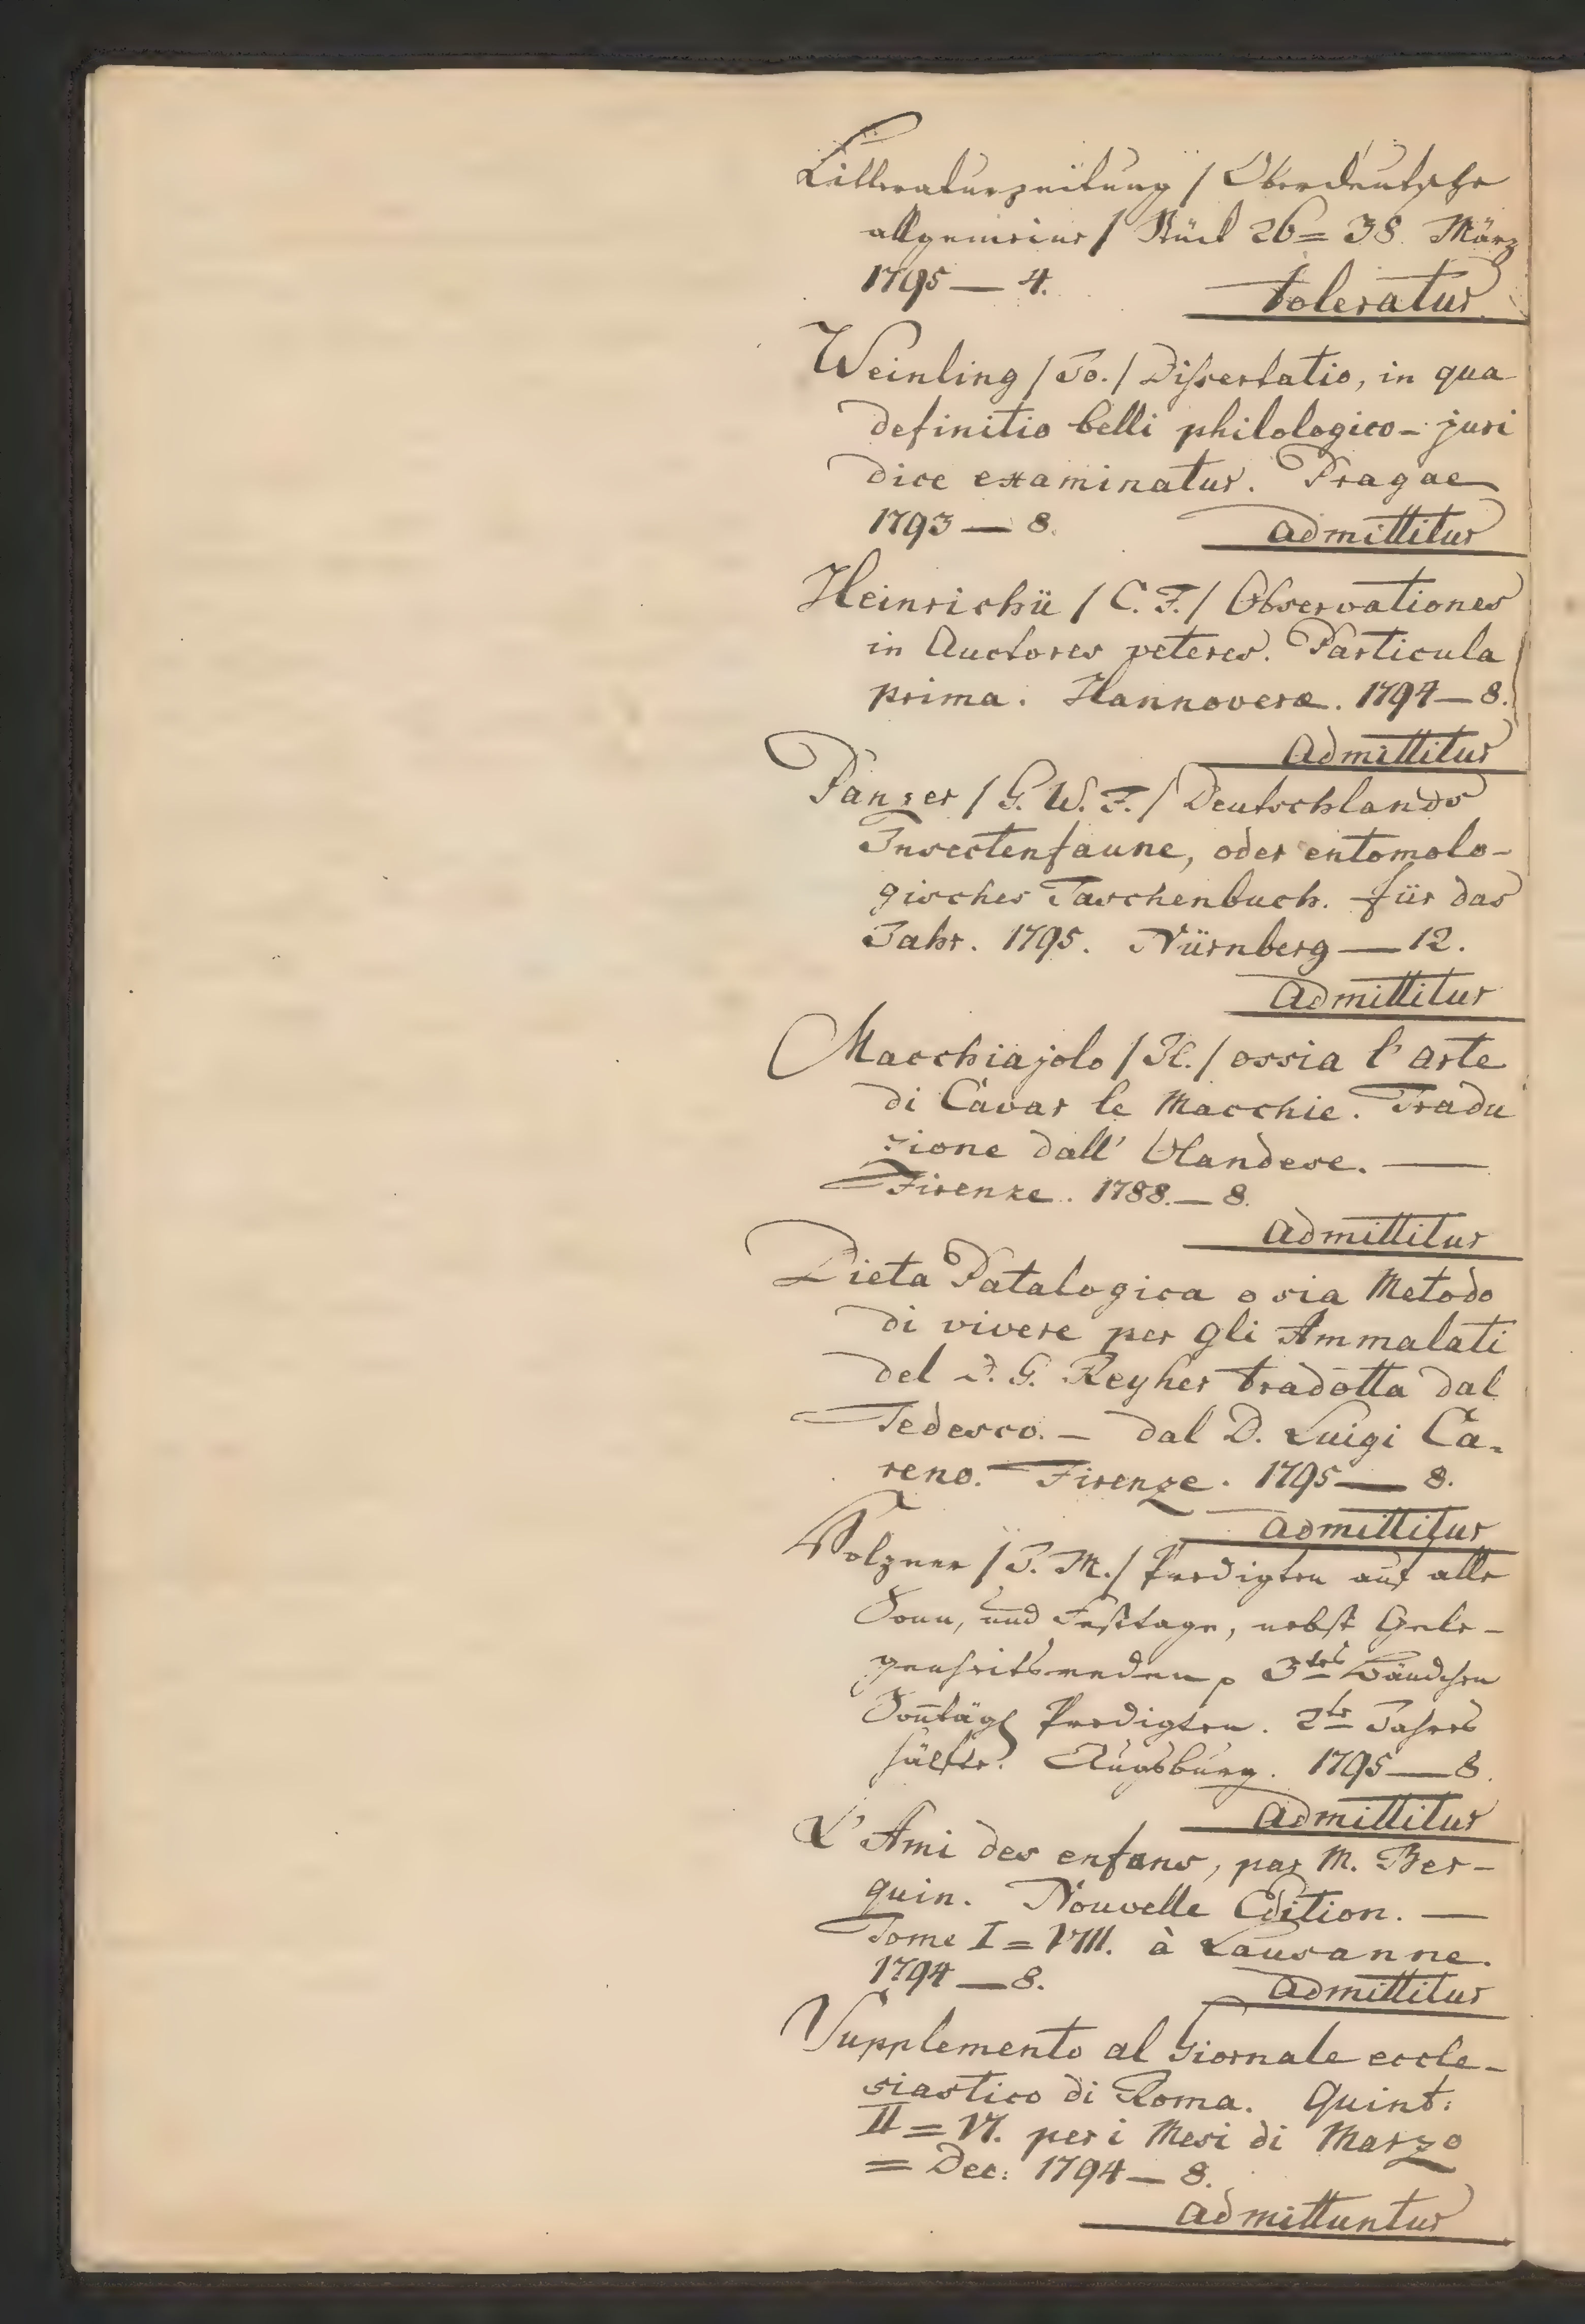 Litteraturzeitung / Oberdeutsche
allgemeine / Stück 26 = 38. März
1795 — 4. toleratur
Weinling / Jo. / Dissertatio, in qua
definitio belli philologico - juri
dice examinatur. Pragae
1793 — 8. admittitur
Heinrichii / C. F. / Observationes
in Auctores veteres. Particula
prima. Hannoveræ. 1794 — 8.
admittitur
Panzer / G. W. F. / Deutschlands
Insectenfaune, oder entomolo-
gisches Taschenbuch. für das
Jahr. 1795. Nürnberg — 12.
admittitur
Macchiajolo / Il. / ossia l' arte
di Cavar le Macchie. Tradu
zione dall' Olandese. —
Firenze. 1788. — 8.
admittitur
Dieta Patalogica o sia Metodo
di vivere per gli Ammalati
del D. G. Reyher tradotta dal
Tedesco. — dal D. Luigi Ca-
reno. Firenze. 1795 — 8.
admittitur
/ J. M. / Predigten auf alle
Sonn, und Festtage, nebst Gele-
genheitsreden 3tes Bändchen
Soñtägl Predigten. 2te Jahres
hälfte. Augsburg. 1795 — 8.
admittitur
L' Ami des enfans, par M. Ber-
quin. Nouvelle Edition. —
Tome I = VIII. à Lausanne.
1794 — 8. admittitur
Supplemento al Giornale eccle-
siastico di Roma. Quint:
II = VI. per i Mesi di Marzo
= Dec: 1794 — 8.
admittuntur